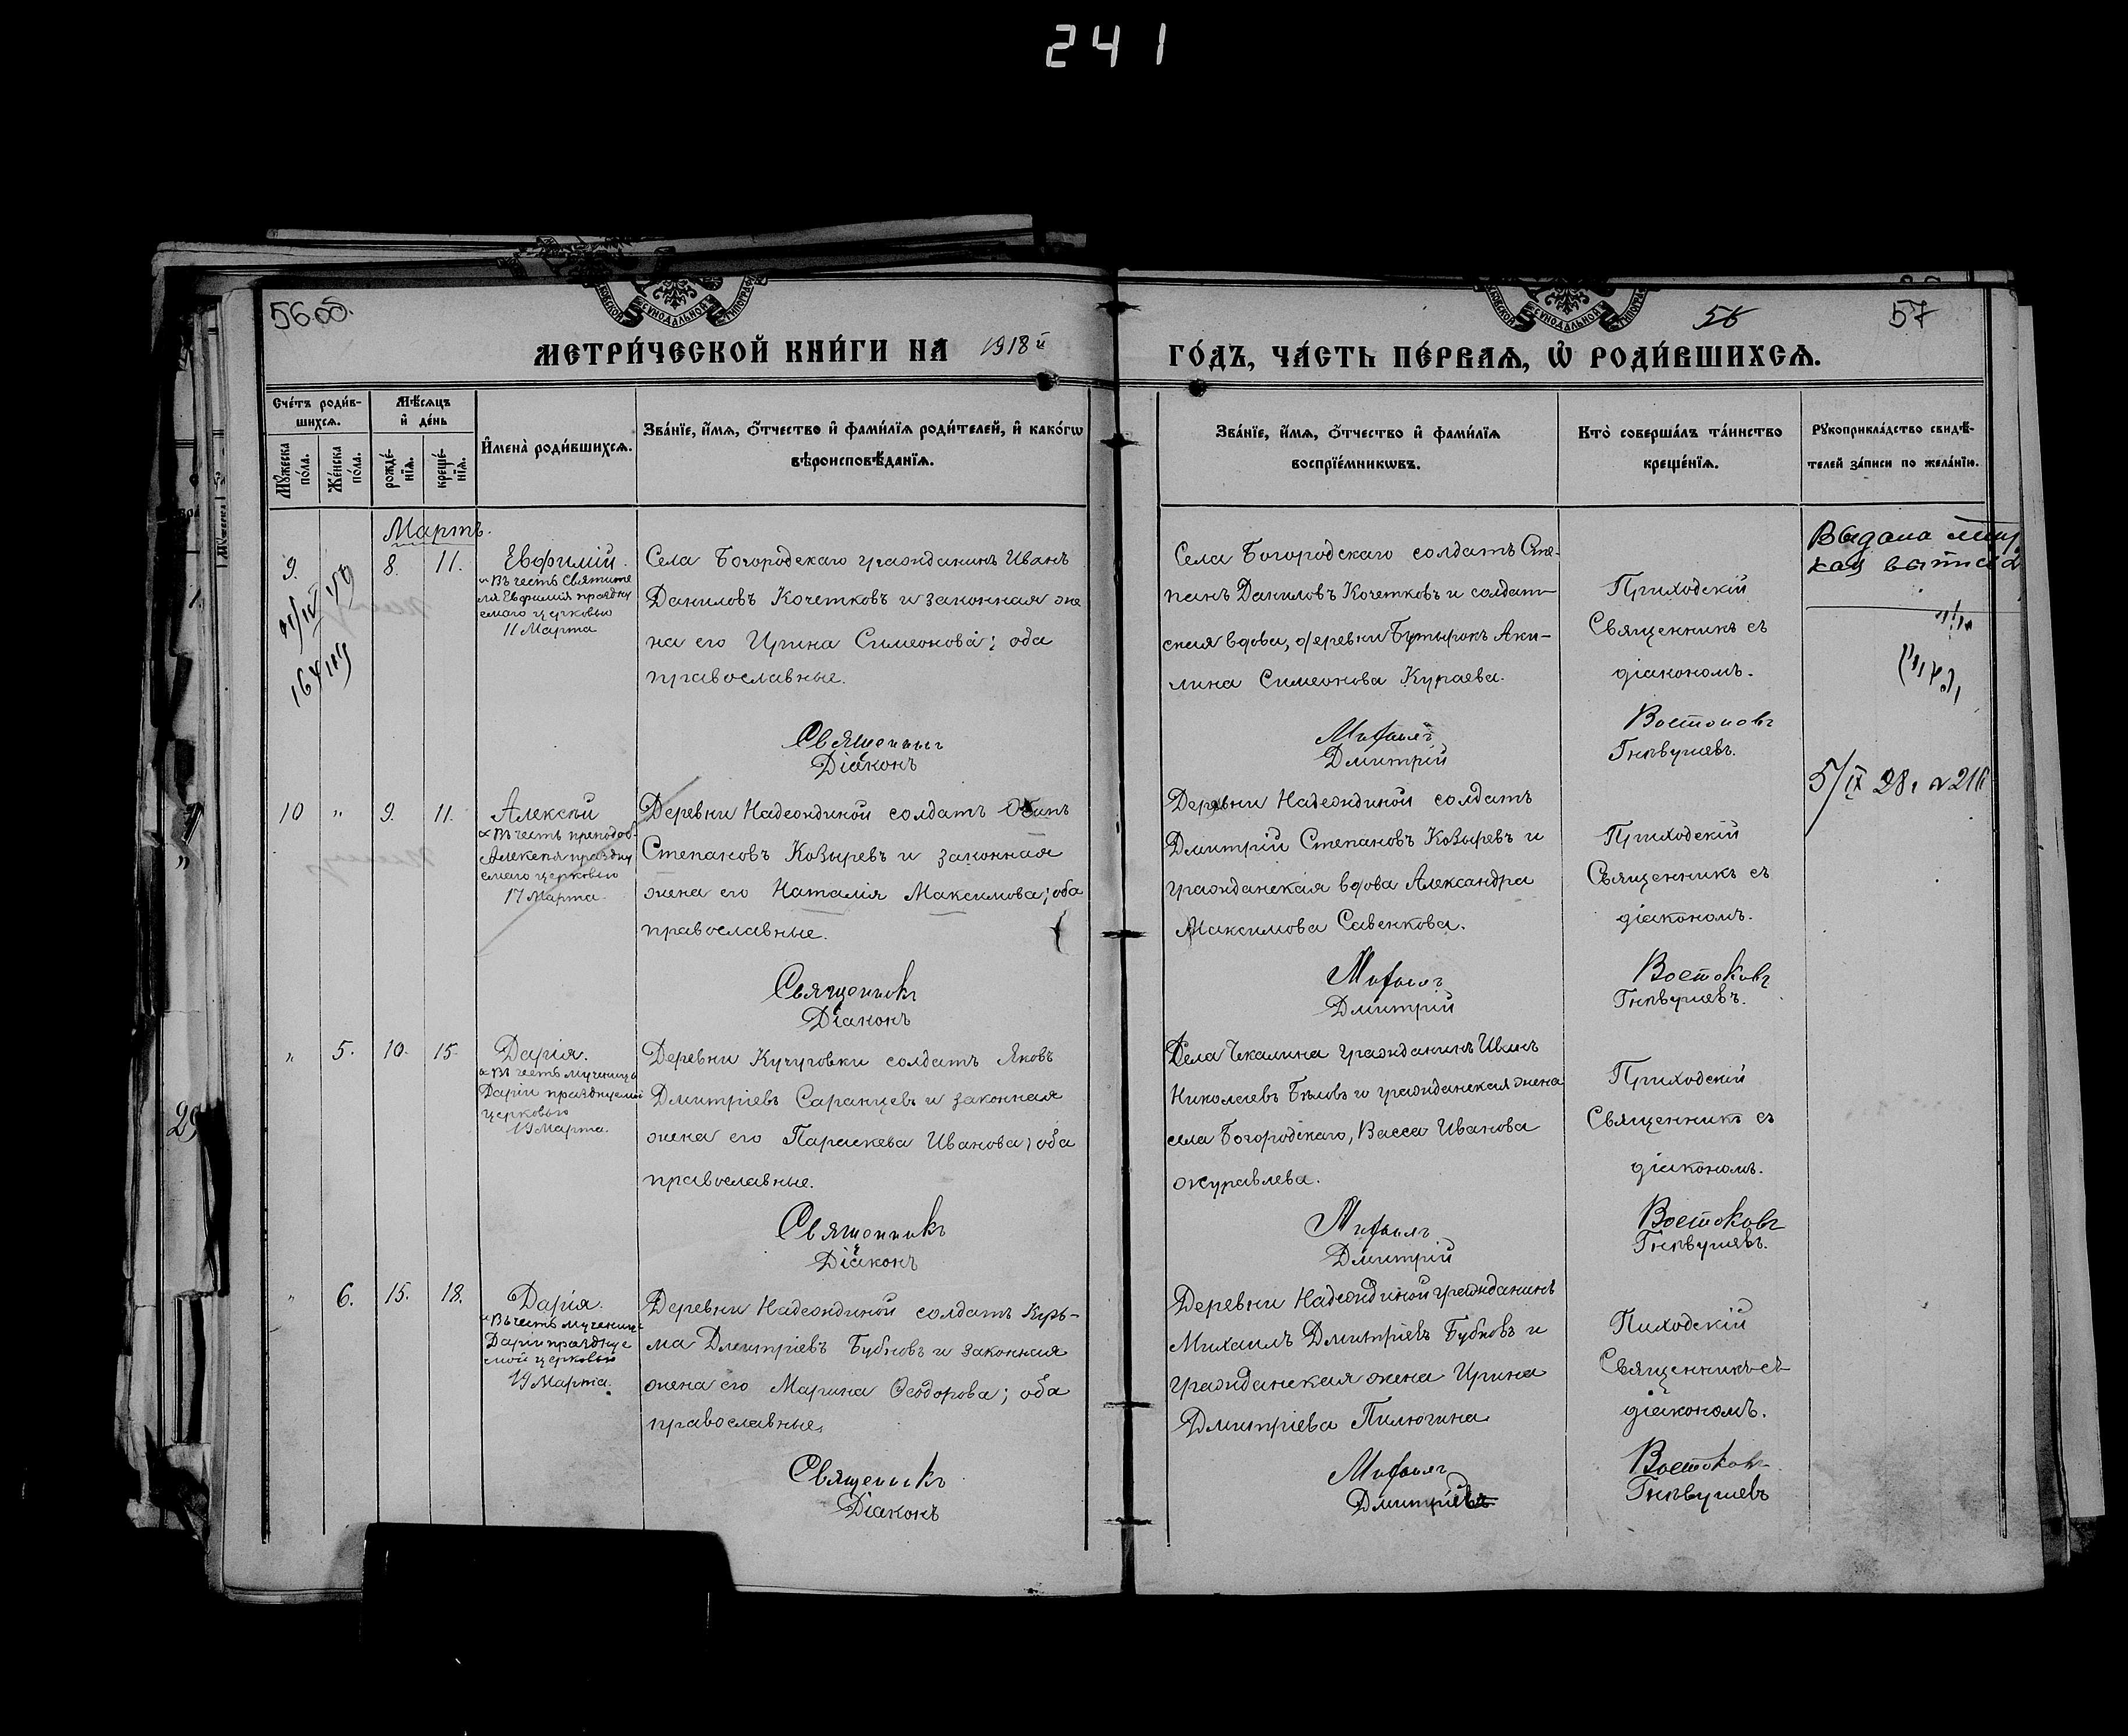 241
56 об.
56
57
МЕТРИ́ЧЕСКОЙ КНИ́ГИ НА 1918 й
ГО́ДЪ, ЧА́СТЬ ПЕ́РВАѦ, Ѡ РОДИ́ВШИХСѦ.
Сче́тъ роди́в-
шихсѧ.
Мꙋ́жеска по́ла.
Же́нска по́ла.
Мѣ́сѧцъ
и҆ де́нь
рожде́-
нїѧ.
креще́-
нїѧ.
И҆мена̀ роди́вшихсѧ.
Зва́нїе, и҆́мѧ, ѻ҆́тчество и҆ фами́лїѧ роди́телей, и҆ како́гѡ
вѣроисповѣ́данїѧ.
Зва́нїе, и҆́мѧ, ѻ҆́тчество и҆ фами́лїѧ
воспрїе́мникѡвъ.
Кто̀ соверша́лъ та́инство
креще́нїѧ.
Рꙋкоприкла́дство свидѣ́-
телей за́писи по жела́нїю.
Мартъ.
9.
8.
11.
Евфимій.
"Въ честь Святите
ля Евфимія праздну
емаго церковью
11 Марта
Села Богородскаго гражданинъ Иванъ
Даниловъ Кочетковъ и законная же
на его Ирина Симеонова; оба
православные.
Села Богородскаго солдатъ Сте-
панъ Даниловъ Кочетковъ и солдат-
ская вдова, деревни Бутырокъ Аки-
лина Симеонова Кураева.
Приходскій
Священникъ съ
діакономъ.
Выдана
Священникъ
Діаконъ
Дмитрій
Востоковъ
Гнѣвушевъ.
5/IX 28 г № 216
10
"
9.
11.
Алексѣй
"Въ честь преподоб-
Алексея праздну
емаго церковью
17 Марта.
Деревни Надеждиной солдатъ Осипъ
Степановъ Козыревъ и законная
жена его Наталія Максимова; оба
православные.
Деревни Надеждиной солдатъ
Дмитрій Степановъ Козыревъ и
гражданская вдова Александра
Максимова Савенкова.
Приходскій
Священникъ съ
діакономъ.
Священникъ
Діаконъ
Дмитрій
Востоковъ
Гнѣвушевъ.
"
5.
10.
15.
Дарія.
"Въ честь мученицы
Даріи празднуемой
церковью
19 Марта.
Деревни Кучуговки солдатъ Яковъ
Дмитріевъ Саранцевъ и законная
жена его Параскева Иванова; оба
православные.
Села Чкалина гражданинъ Иванъ
Николаевъ Бѣловъ и гражданская жена
села Богородскаго, Васса Иванова
Журавлева.
Приходскій
Священникъ съ
діакономъ.
Священникъ
Діаконъ
Дмитрій
Востоковъ
Гнѣвушевъ.
"
6.
15.
18.
Дарія.
"Въ честь мучениц
Даріи праздцуе
мой церковью
19 Марта.
Деревни Надеждиной солдатъ Кузь-
ма Дмитріевъ Бубновъ и законная
жена его Марина Ѳеодорова; оба
православные.
Деревни Надеждиной гражданинъ
Михаилъ Дмитріевъ Бубновъ и
гражданская жена Ирина
Дмитріева Пилюгина
Пиходскій
Священникъ съ
діакономъ.
Священникъ
Діаконъ
Дмитріевъ
Востоковъ
Гнѣвушевъ